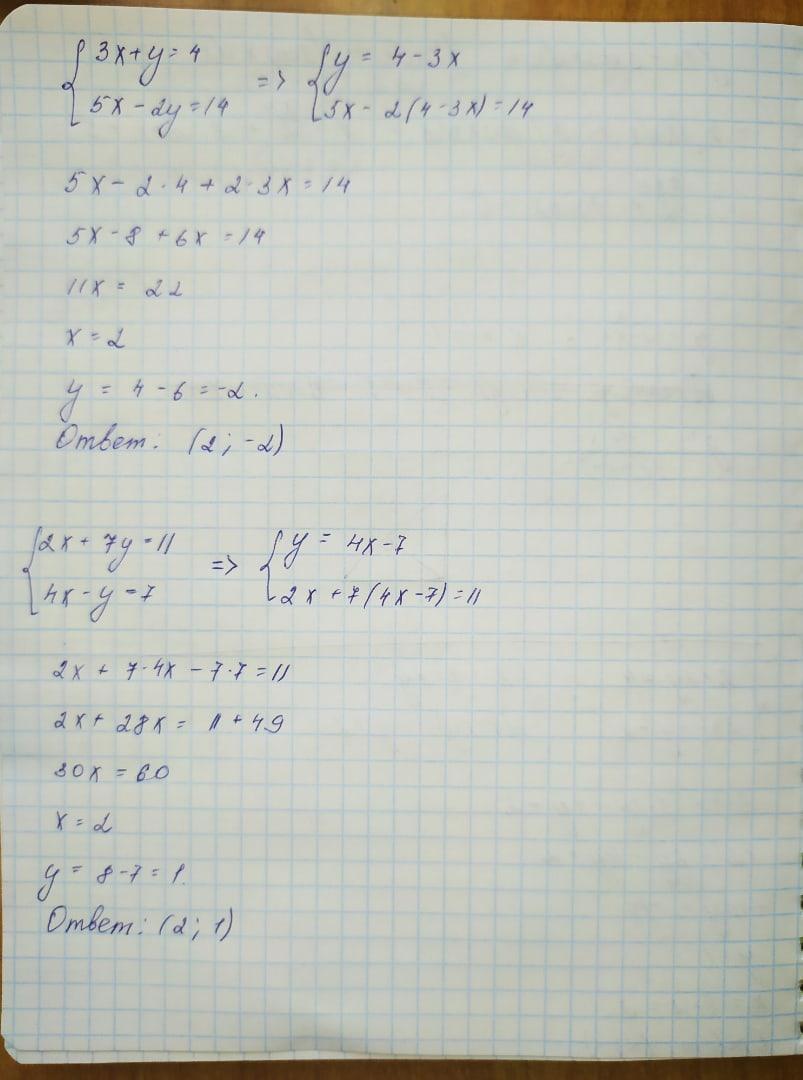 {3x+y=4 => {y = 4-3x
5x-2y=14 5x- 2(4-3x)=14
5x- 2·4 + 2·3x=14
5x-8 +6x =14
11x = 22
x=2
y = 4-6=-2.
Ответ: (2; -2)
{2x+ 7y=11 => {y = 4x-7
4x-y=7 2x+7(4x-7)=11
2x + 7·4x - 7·7=11
2x+ 28x = 11+49
30x = 60
x=2
y = 8-7=1.
Ответ: (2; 1)